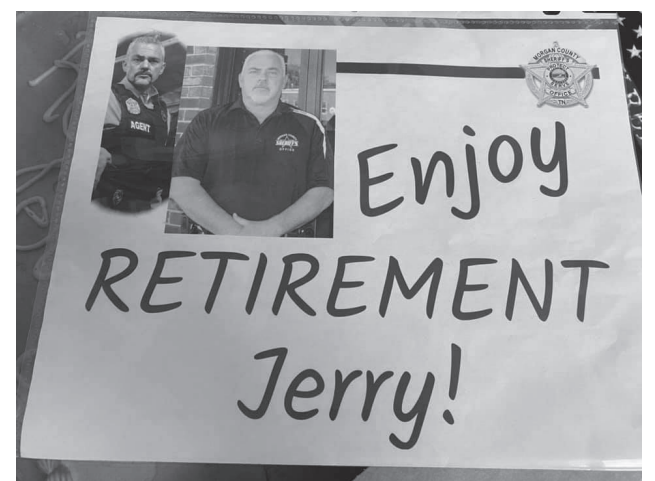 AGENT
SHERIFF'S
OFFICE
MORGAN COUNTY
SHERIFF'S
PROTECT
SERVE
OFFICE
TN
Enjoy
RETIREMENT
Jerry!